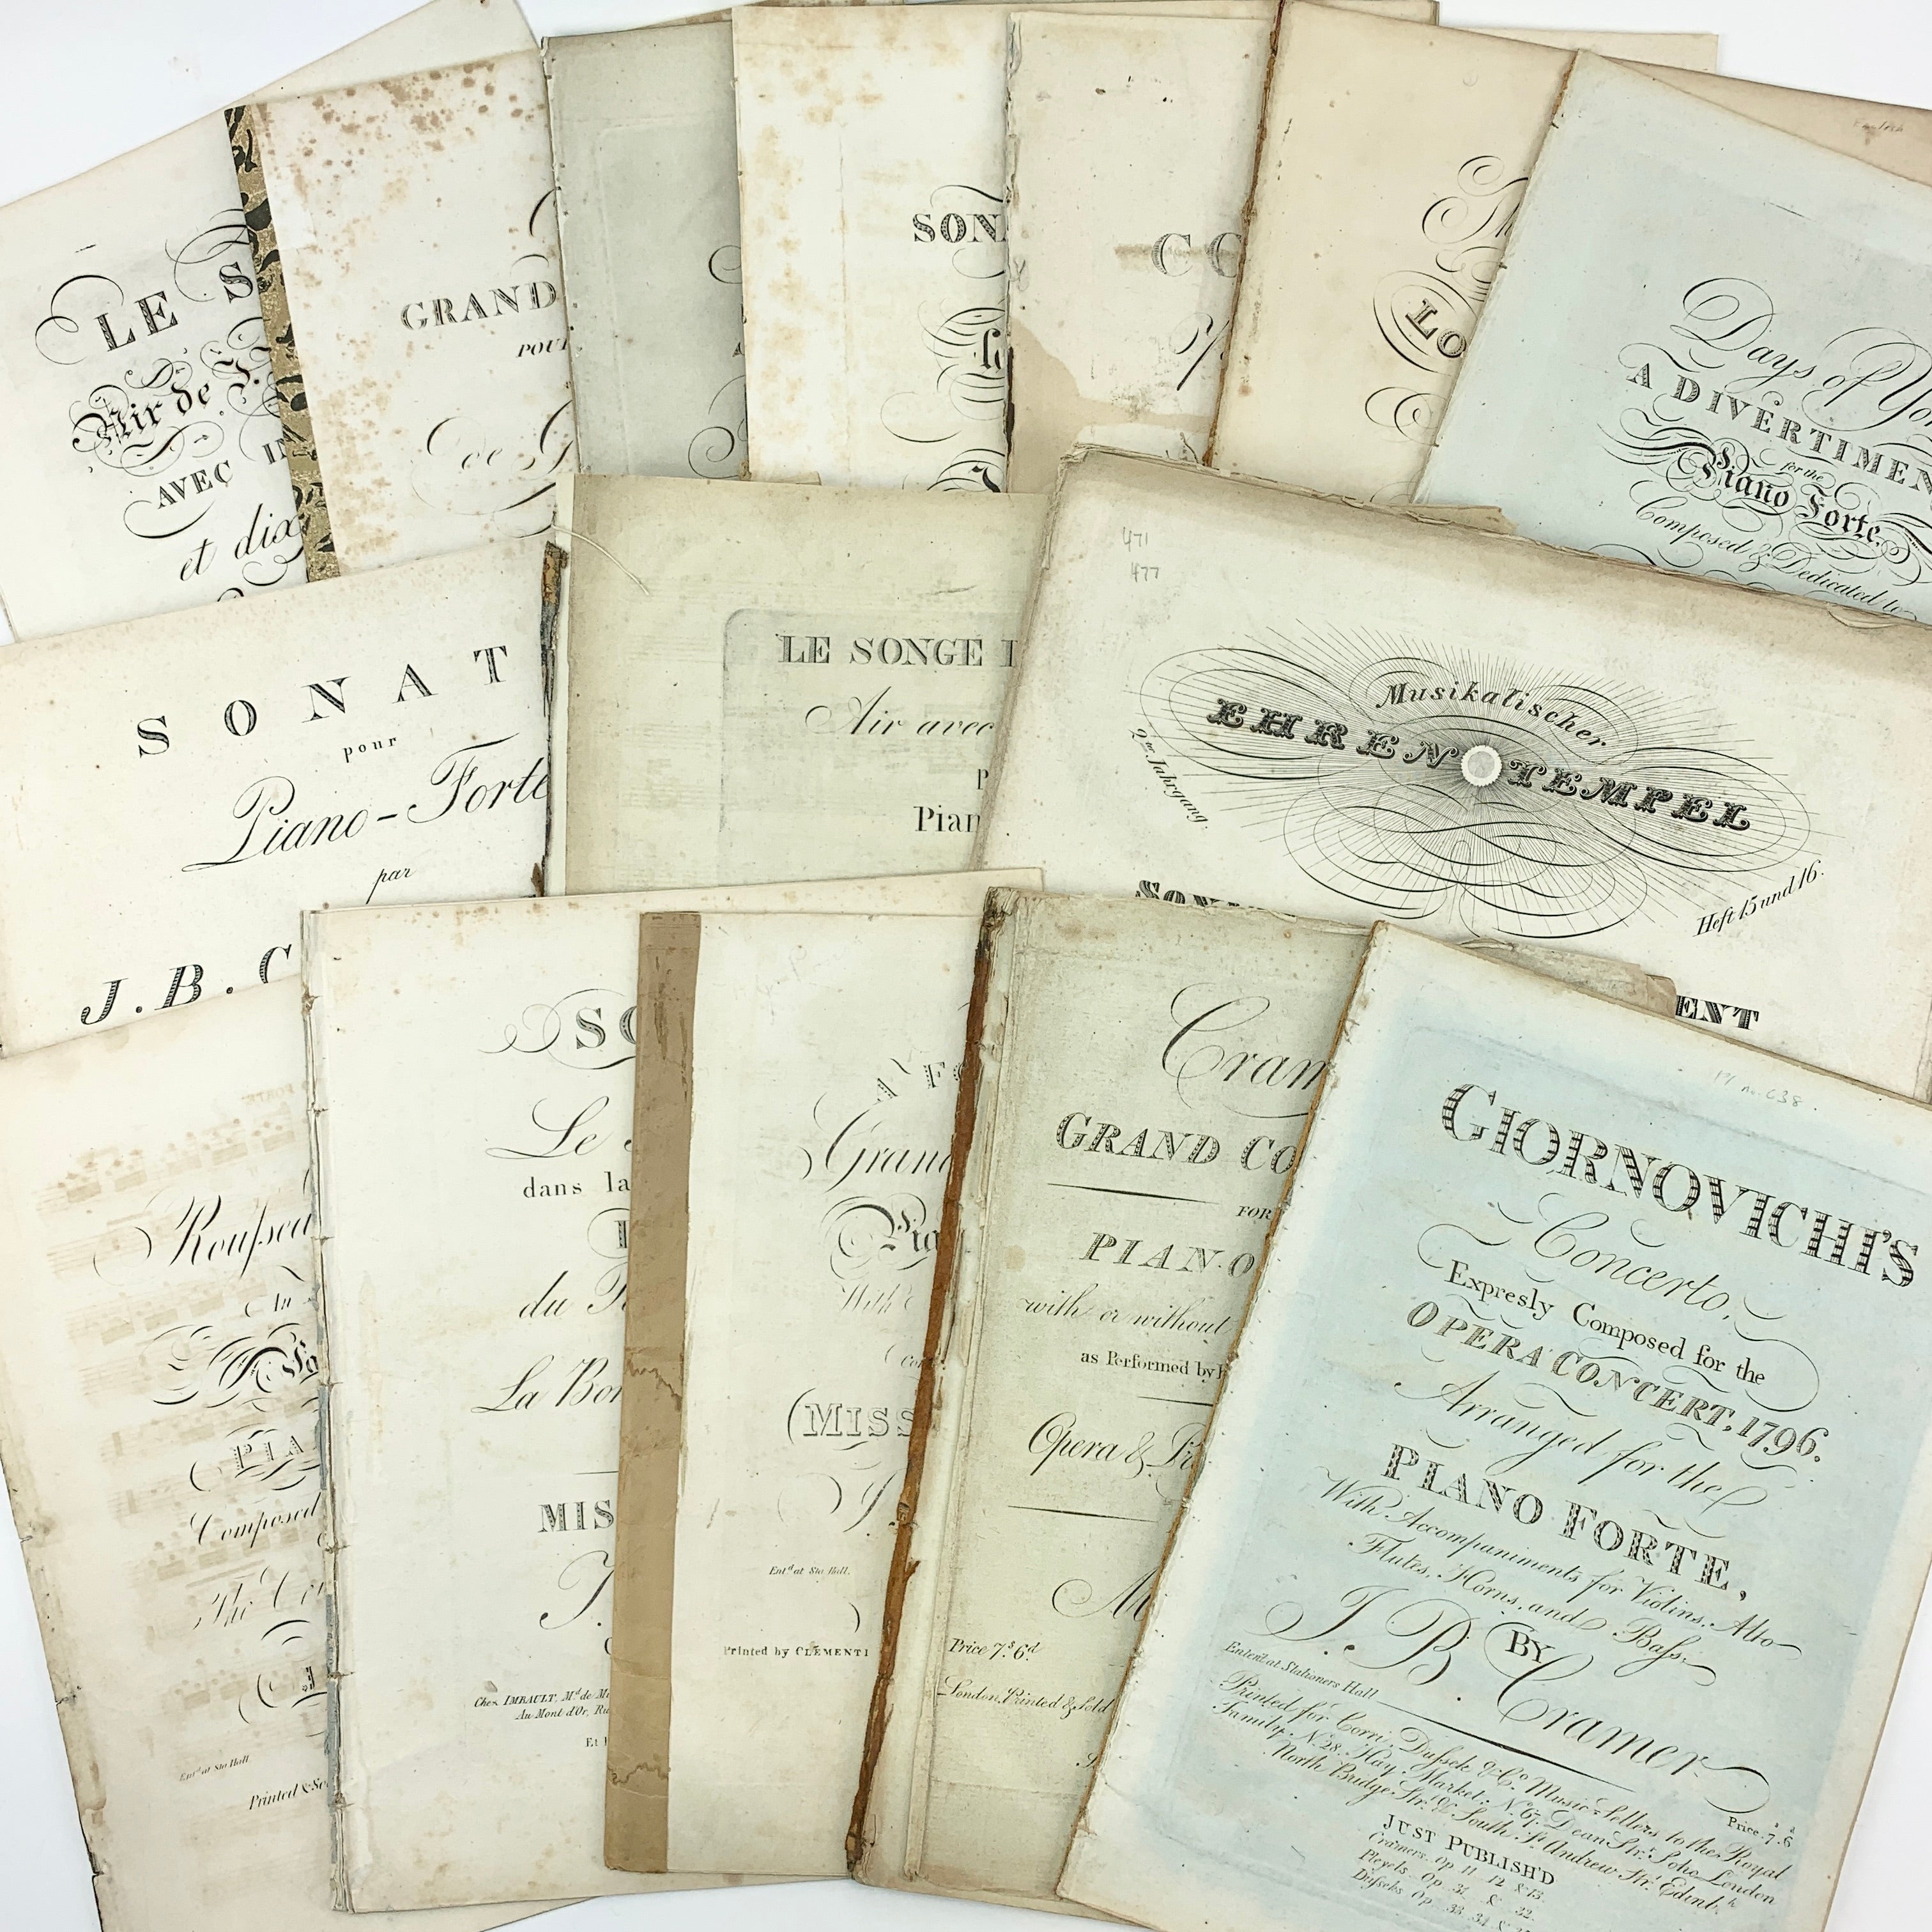 LE S
Air de
AVEC
et dix
GRAND
POUR
SON
LO
Days of Yo
A DIVERTIMEN
for the
Piano Forte,
Composed & Dedicated to
SONAT
pour
Piano-Forte
par
J. B. C
LE SONGE
Air avec
Pian
471
477
Musikalischer
EHREN TEMPEL
2ter Jahrgang.
Heft 15 und 16.
ENT
Roussea
An
PIA
Composed
Entd at Sta. Hall
Printed & So
SO
Le
dans la
du
La Bon
MIS
J.
Chez IMBAULT, Md de M
Au Mont d'Or, Ru
Et
A FO
Grand
Pia
With
Com
(MISS
Entd at Sta. Hall.
Printed by CLEMENTI
Cram
GRAND CO
FOR
PIANO
with or without
as Performed by
Opera & Pr
Price 7s. 6d
London, Printed & Sold
Pl no. 638.
GIORNOVICHI'S
Concerto,
Expresly Composed for the
OPERA CONCERT, 1796.
Arranged for the
PIANO FORTE,
With Accompaniments for Violins, Alto
Flutes, Horns, and Bass,
BY
J. B. Cramer
Enter'd at Stationers Hall
Price 7.s 6.d
Printed for Corri, Dussek & Co. Music-Sellers to the Royal
Family, N. 28. Hay Market; N. 67. Dean Str. Soho London
North Bridge Str. & South St. Andrew Str. Edinbh.
JUST PUBLISH'D
Cramers Op 11 12 & 13.
Pleyels Op. 31 & 32.
Dusseks Op. 33. 34 &